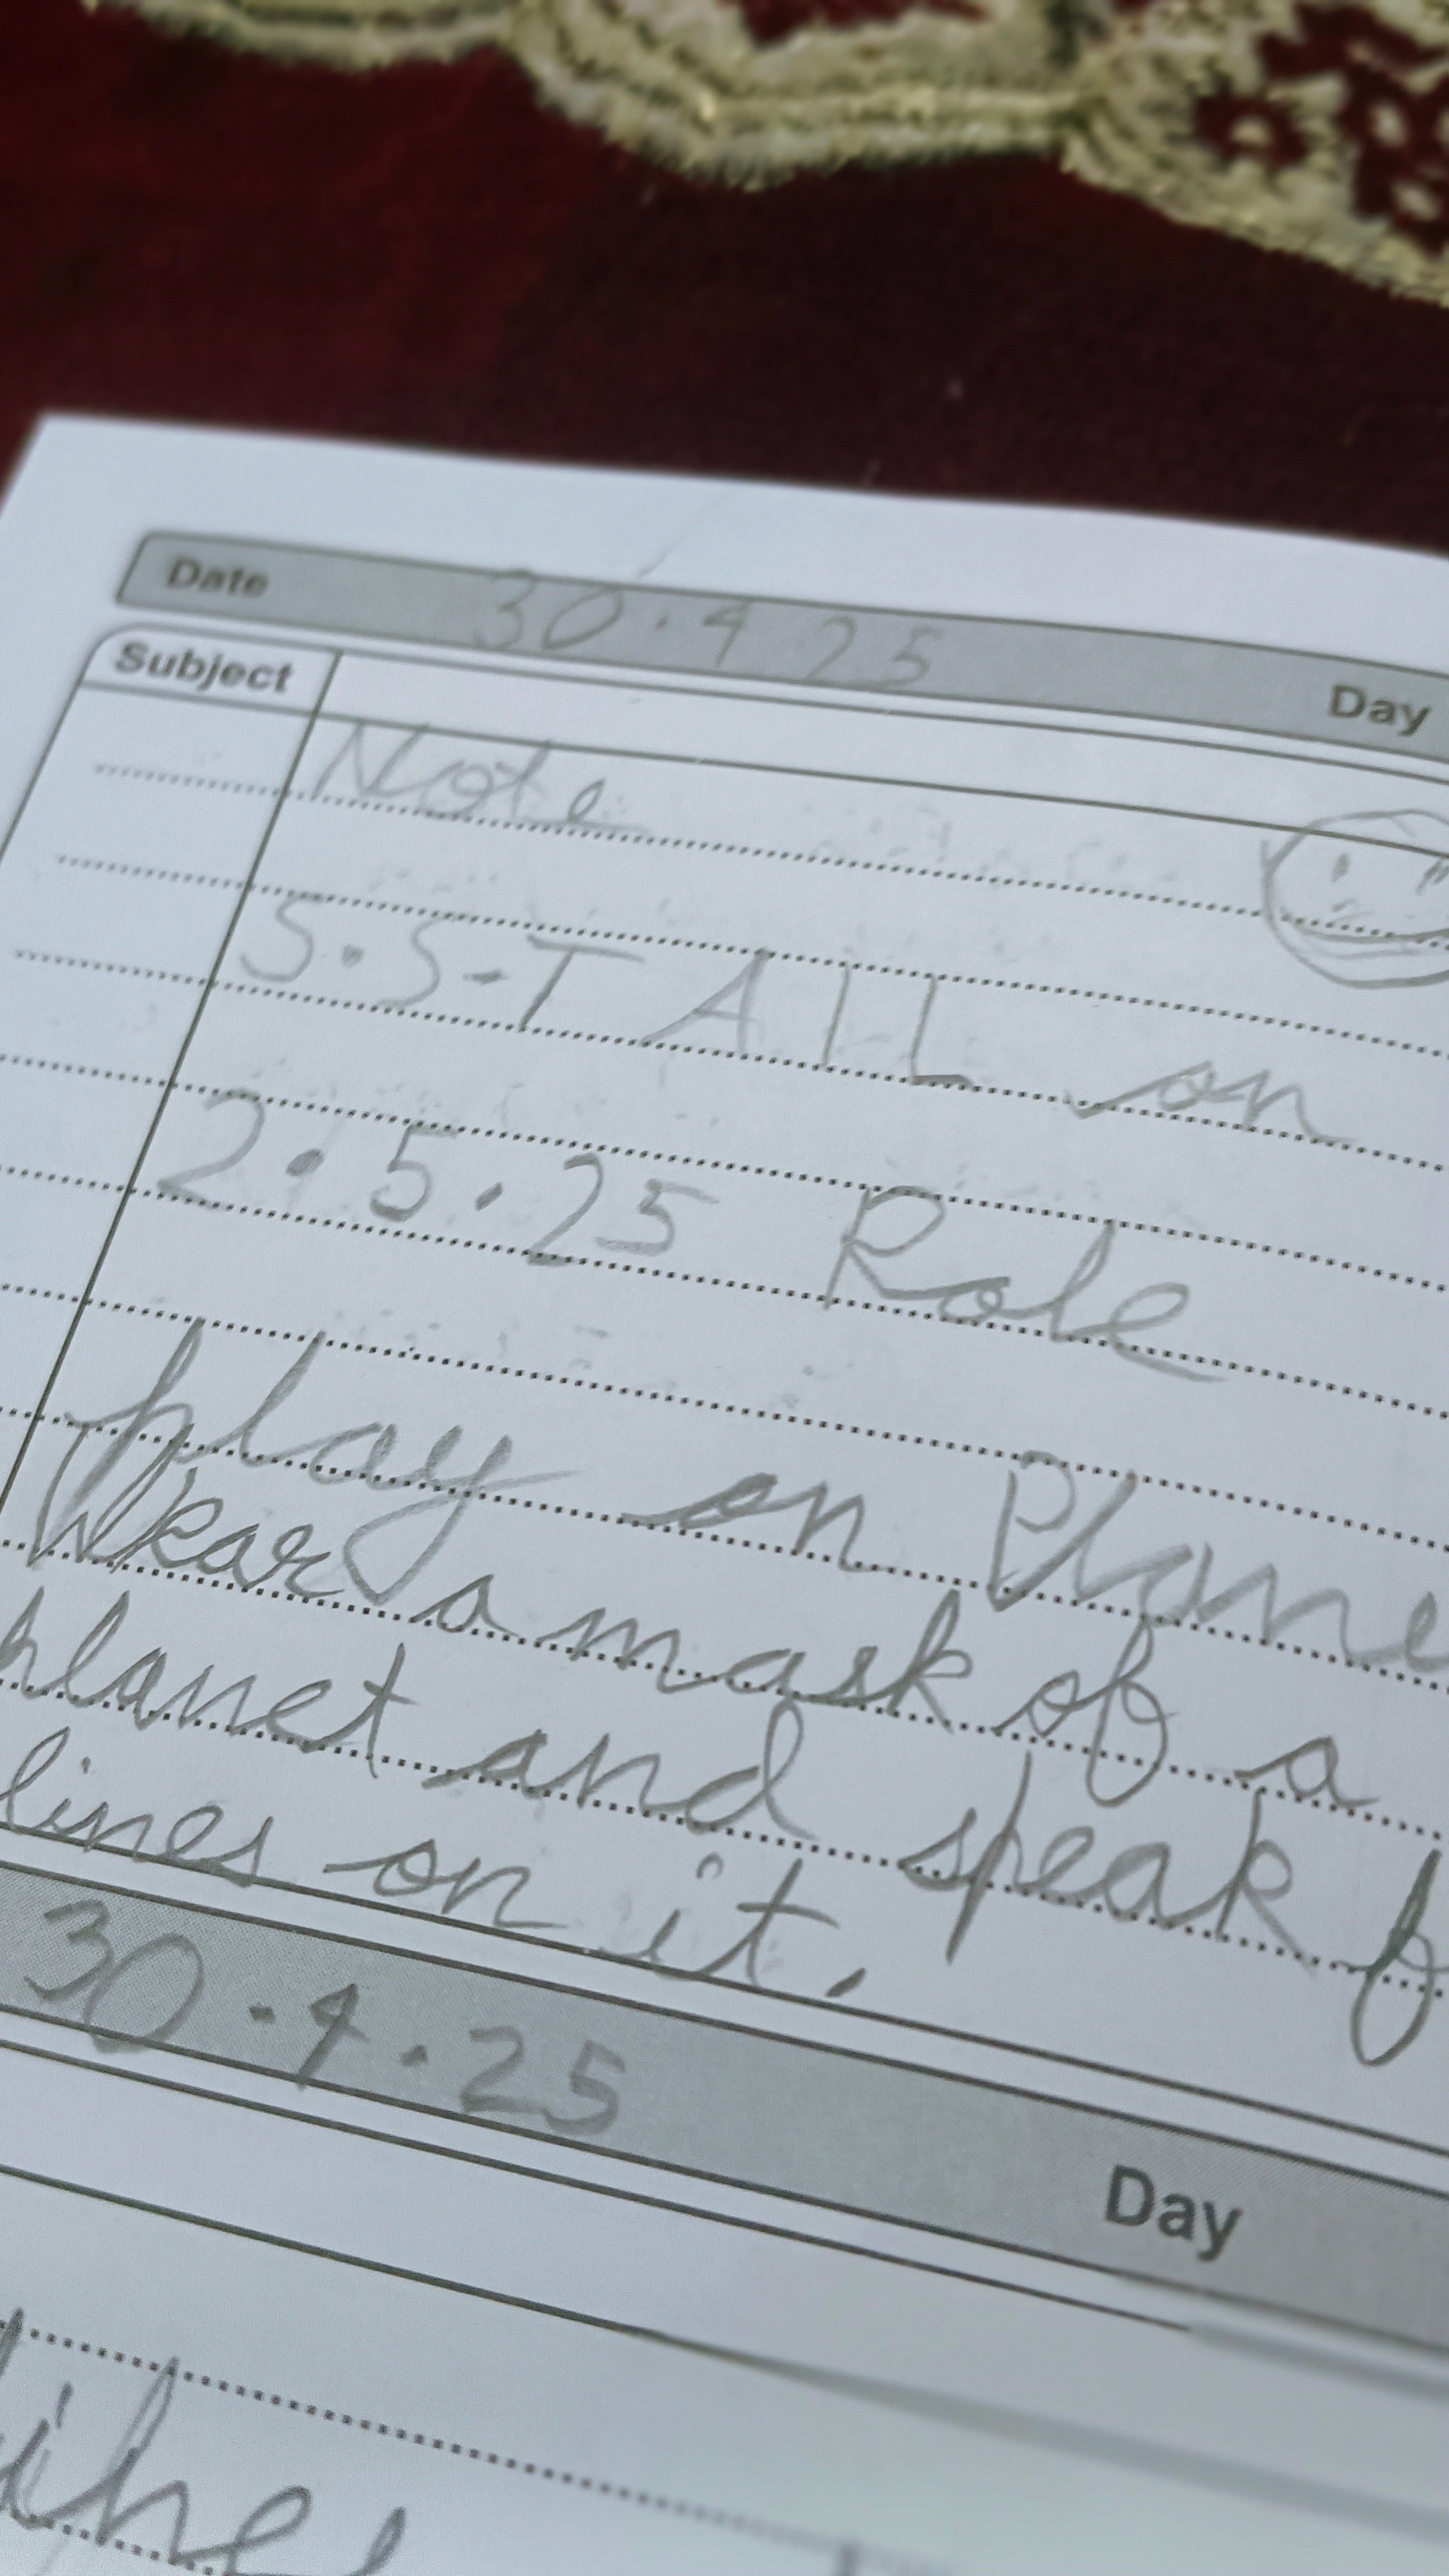 Date 30.4 25
Day
Subject
Note
S.S.T AIL on
2.5.25 Role
play on Plane
Wear a mask of a
planet and speak f
lines on it.
30.4.25
Day